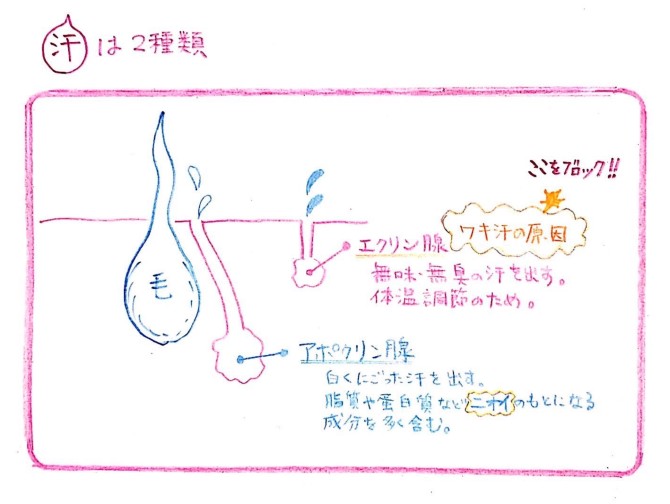 汗は2種類
ここをブロック!!
ワキ汗の原因
エクリン腺
無味・無臭の汗を出す。
体温調節のため。
毛
アポクリン腺
白くにごった汗を出す。
脂質や蛋白質などニオイのもとになる
成分を多く含む。